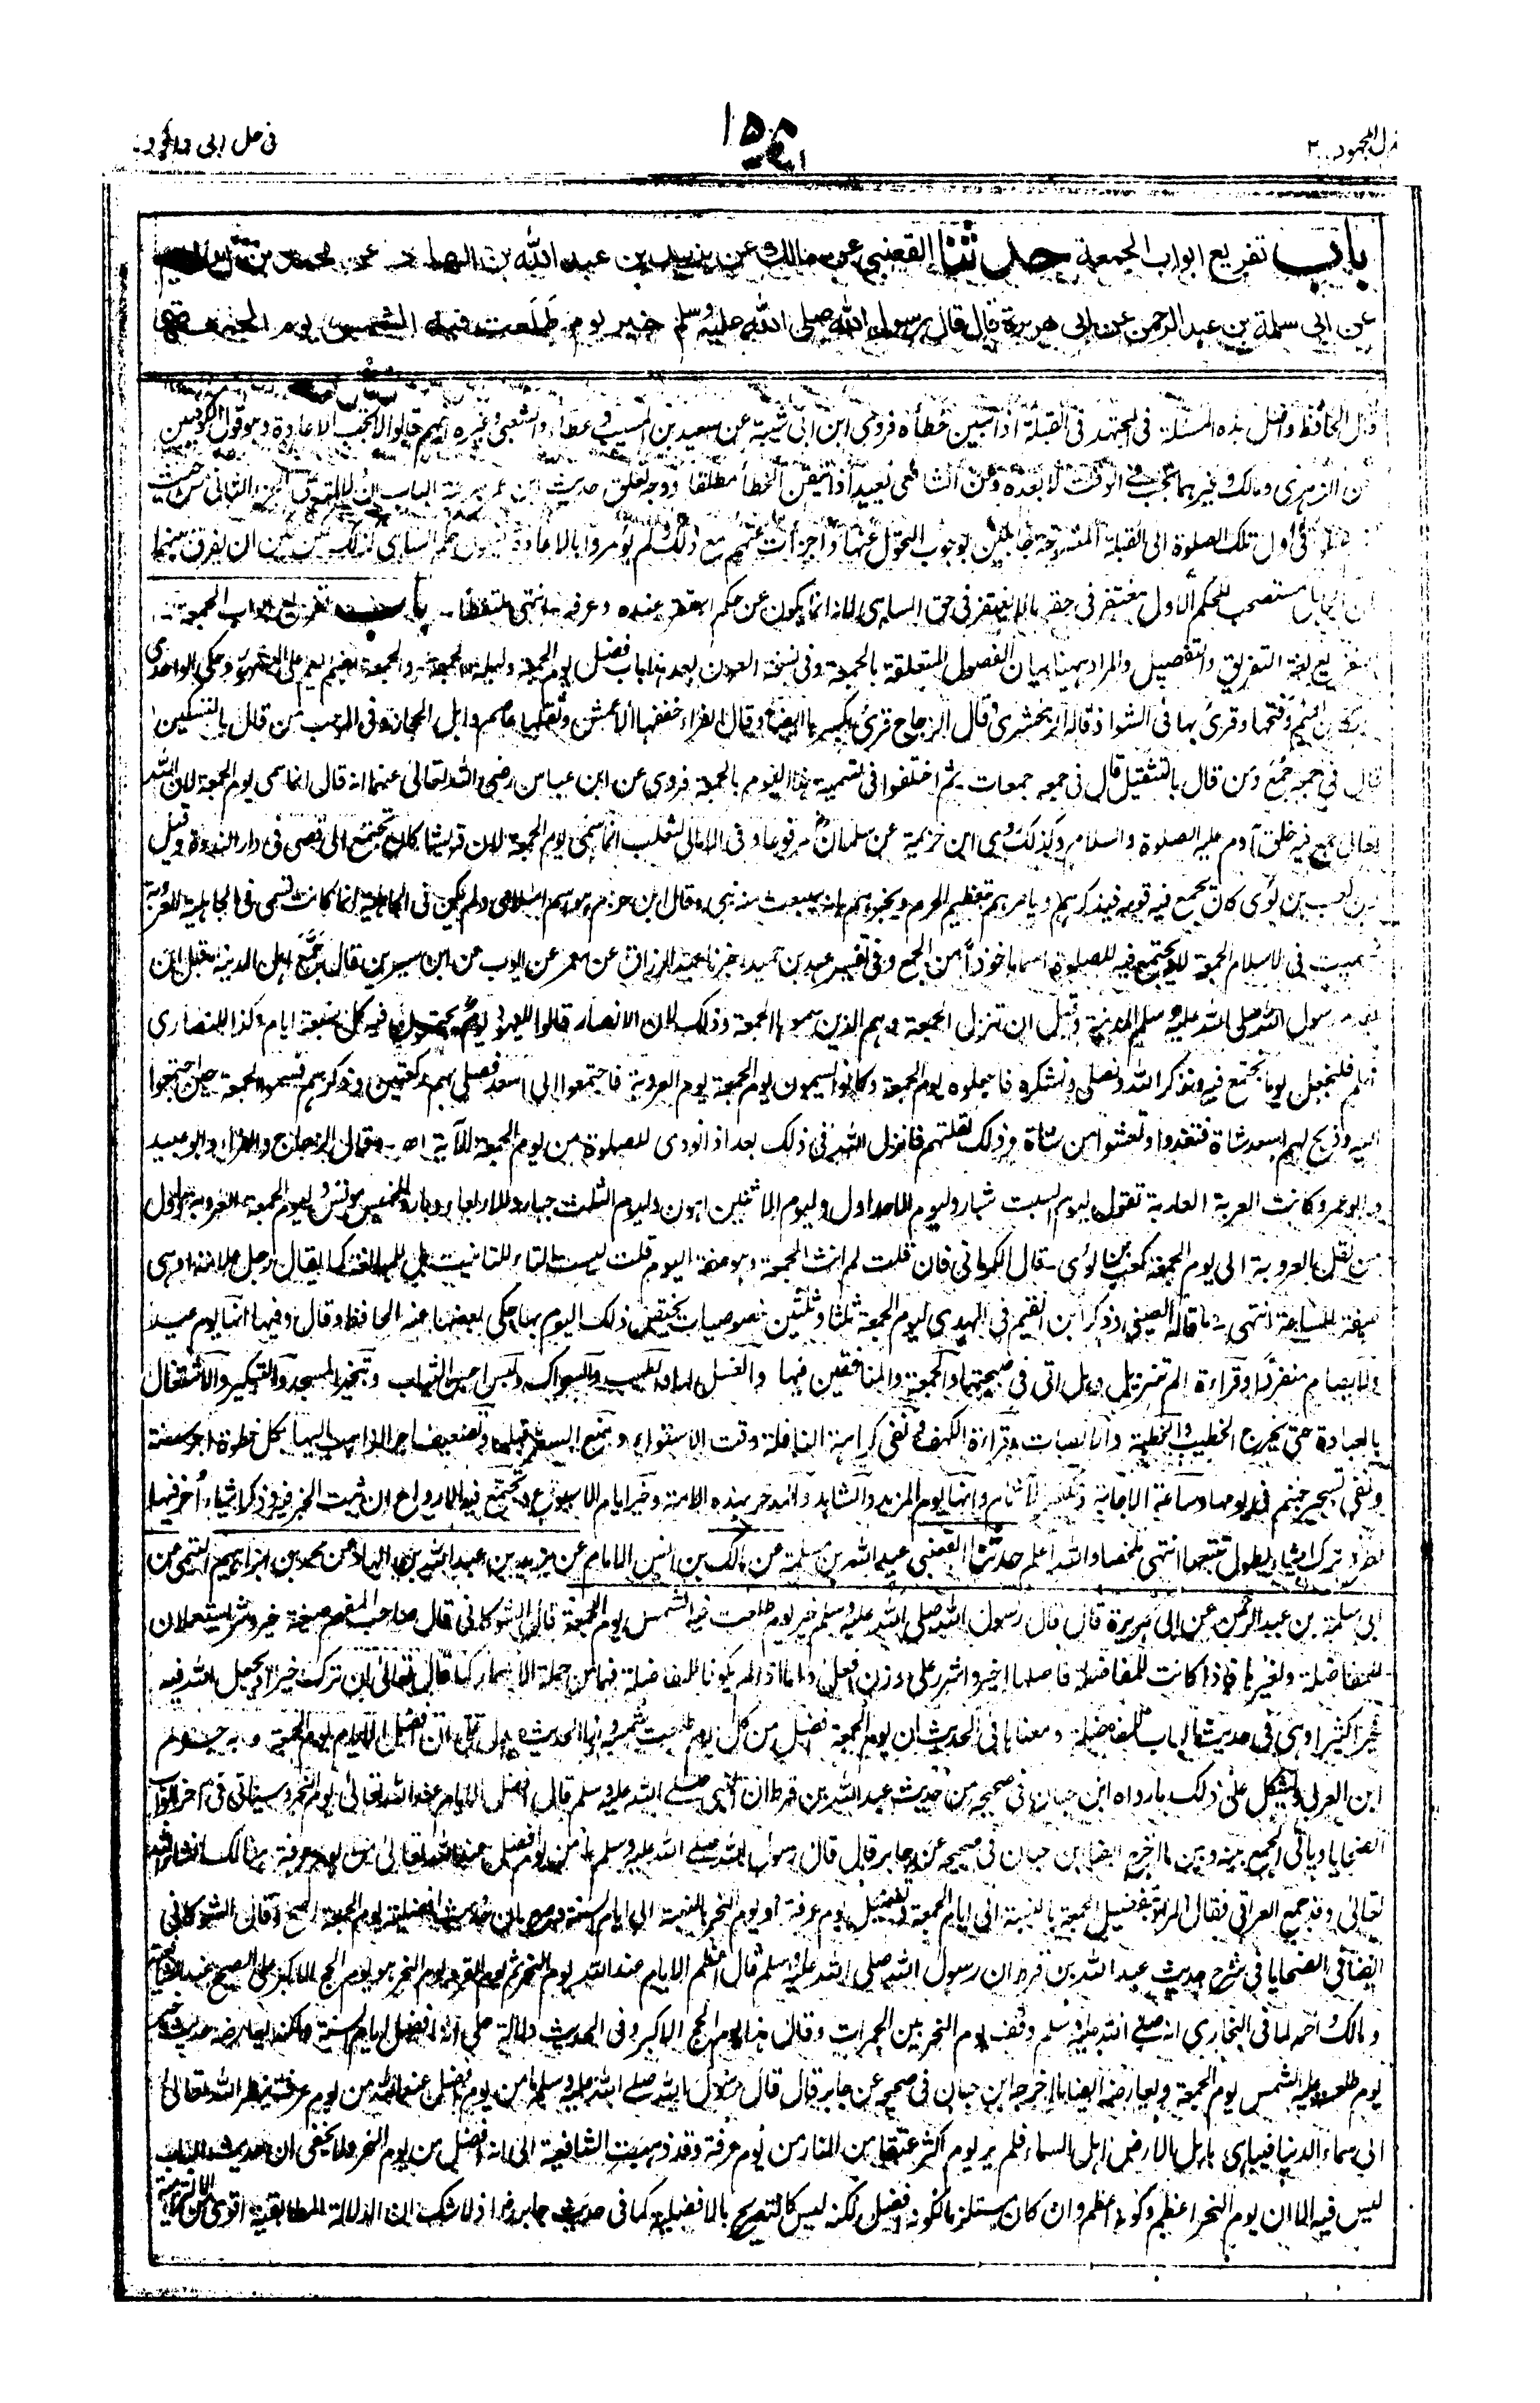 فى حل ابى داؤد
باب تفريع ابواب الجمعة حدثنا القعنبي عن مالك عن يزيد بن عبد الله بن الهاد عن محمد بن
عن ابى سلمة بن عبد الرحمن عن ابى هريرة قال قال رسول الله صلى الله عليه وسلم خير يوم طلعت فيه الشمس يوم الجمعة
الحافظ واصل هذه المسئلة فى المجتهد فى القبلة اذا تبين خطأه فروى ابن ابى شيبة عن سعيد بن المسيب وعطاء والشعبى وغيرهم انهم قالوا لا تجب الاعادة وهو قول الكوفيين
الزهرى ومالك وغيرهما تجب فى الوقت لا بعده وعن الشافعى يعيد اذا تيقن الخطأ مطلقا ووجه تعلق حديث ابن عمر
فى اول تلك الصلوة الى القبلة المنسوخة جاهلين بوجوب التحول عنها واجزأت عنهم مع ذلك ولم يؤمروا بالاعادة
مستصحب للحكم الاول مغتفر فى حقه مالا يغتفر فى حق الساهى لانه انما يكون عن حكم استقر عنده وعرفه انتهى ملتقطا - باب تفريع ابواب الجمعة
لغة التفريق والتفصيل والمراد ههنا بيان الفصول المتعلقة بالجمعة وفى نسخة العون بعد هذا باب فضل يوم الجمعة وليلة الجمعة - والجمعة بضم الميم على المشهور وحكى الواحدى
الميم وفتحها وقرئ بها فى الشواذ قاله الزمخشرى وقال الزجاج قرئ بكسرها ايضا وقال الفراء خففها الاعمش وثقلها عاصم واهل الحجاز وفى المذهب من قال بالتسكين
قال فى جمعه جُمَع ومن قال بالتثقيل قال فى جمعه جمعات - ثم اختلفوا فى تسمية هذا اليوم بالجمعة فروى عن ابن عباس رضى الله تعالى عنهما انه قال انما سمى يوم الجمعة لان الله
تعالى جمع فيه خلق آدم عليه الصلوة والسلام وكذلك روى ابن خزيمة عن سلمان مرفوعا وفى الامالى لثعلب انما سمى يوم الجمعة لان قريشا كانت تجتمع الى قصى فى دار الندوة وقيل
كعب بن لؤى كان يجمع فيه قومه فيذكرهم ويأمرهم بتعظيم الحرم ويخبرهم بانه سيبعث منه نبى وقال ابن حزم هو اسم اسلامى ولم يكن فى الجاهلية انما كانت تسمى فى الجاهلية العروبة
فسميت فى الاسلام الجمعة لانه يجتمع فيه للصلوة اسما ماخوذا من الجمع وفى تفسير عبد بن حميد اخبرنا عبد الرزاق عن معمر عن ايوب عن ابن سيرين قال جمّع اهل المدينة قبل ان
رسول الله صلى الله عليه وسلم المدينة وقبل ان تنزل الجمعة وهم الذين سموها الجمعة وذلك لان الانصار قالوا لليهود يوم يجتمعون فيه كل سبعة ايام وكذا للنصارى
فلنجعل يوما نجتمع فيه ونذكر الله ونصلى ونشكره فاجعلوه يوم العروبة وكانوا يسمون يوم الجمعة يوم العروبة فاجتمعوا الى اسعد فصلى بهم ركعتين وذكرهم فسموه الجمعة حين اجتمعوا
اليه وذبح لهم اسعد شاة فتغدوا وتعشوا من شاة وذلك لقلتهم فانزل الله فى ذلك بعد اذا نودى للصلوة من يوم الجمعة الآية اھ - وقال الزجاج والفراء وابو عبيد
وابو عمرو كانت العرب العاربة تقول ليوم السبت شبار وليوم الاحد اول وليوم الاثنين اهون وليوم الثلث جبار وللاربعاء دبار وللخميس مونس وليوم الجمعة العروبة واول
من نقل العروبة الى يوم الجمعة كعب بن لؤى - قال الكرمانى فان قلت لم انث الجمعة وهو صفة اليوم قلت ليست التاء للتانيث بل للمبالغة كما يقال رجل علامة او هى
صفة للساعة انتهى - ما قاله العينى وذكر ابن القيم فى الهدى ليوم الجمعة ثلثا وثلثين خصوصيات يختص ذلك اليوم بها حكى بعضها عنه الحافظ وقال وفيها انها يوم عيد
ولا يصام منفردا وقراءة الم تنزيل وهل اتى فى صبيحتها والجمعة والمنافقين فيها والغسل لها والطيب والسواك ولبس احسن الثياب وتبخير المسجد والتبكير والاشتغال
بالعبادة حتى يخرج الخطيب والخطبة والانصات وقراءة الكهف ونفى كراهة النافلة وقت الاستواء ومنع السفر قبلها وتضعيف اجر الذاهب اليها بكل خطوة اجر سنة
ونفى تسجير جهنم فى يومها وساعة الاجابة وتكفير الآثام وانها يوم المزيد والشاهد والمدخر لهذه الامة وخير ايام الاسبوع وتجتمع فيه الارواح ان ثبت الخبر فيه وذكر اشياء أُخر فيها
نظر وترك اشياء يطول تتبعها انتهى ملخصا والله اعلم حدثنا القعنبى عبد الله بن مسلمة عن مالك بن انس الامام عن يزيد بن عبد الله بن الهاد عن محمد بن ابراهيم التيمى عن
ابى سلمة بن عبد الرحمن عن ابى هريرة قال قال رسول الله صلى الله عليه وسلم خير يوم طلعت فيه الشمس يوم الجمعة قال الشوكانى قال صاحب المفهم صيغة خير وشر يستعملان
للمفاضلة ولغيرها فاذا كانت للمفاضلة فاصلها اخير واشرر على وزن افعل واما اذا لم يكونا للمفاضلة فهما من جملة الاسماء كما قال تعالى ان ترك خيرا ويجعل الله فيه
خيرا كثيرا وهى فى حديث الباب للمفاضلة ومعناها فى الحديث ان يوم الجمعة افضل من كل يوم طلعت شمسه وهذا الحديث يدل على ان افضل الايام يوم الجمعة وبه جزم
ابن العربى ويشكل على ذلك مارواه ابن حبان فى صحيحه من حديث عبد الله بن قرط ان النبى صلے الله عليه وسلم قال افضل الايام عند الله تعالى يوم النحر وسياتى فى آخر ابواب
الضحايا وياتى الجمع بينه وبين ما اخرج ايضا ابن حبان فى صحيحه عن جابر قال قال رسول الله صلے الله عليه وسلم ما من يوم افضل عند الله تعالى من يوم عرفة هنالك انشاء الله
تعالى وقد جمع العراقى فقال المراد بتفضيل الجمعة بالنسبة الى ايام الجمعة وتفضيل يوم عرفة او يوم النحر بالنسبة الى ايام السنة وصرح بان حديث افضلية يوم الجمعة اصح وقال الشوكانى
ايضا فى الضحايا فى شرح حديث عبد الله بن قرط ان رسول الله صلى الله عليه وسلم قال اعظم الايام عند الله يوم النحر ثم يوم القر يوم النحر هو يوم الحج الاكبر على الصحيح عند الشافعية
ومالك واحمد لما فى البخارى انه صلے الله عليه وسلم وقف يوم النحر بين الجمرات وقال هذا يوم الحج الاكبر وفى الحديث دلالة على انه افضل ايام السنة ولكنه يعارضه حديث خير
يوم طلعت عليه الشمس يوم الجمعة ويعارضه ايضا ما اخرجه ابن حبان فى صحيحه عن جابر قال قال رسول الله صلے الله عليه وسلم ما من يوم افضل عند الله من يوم عرفة ينزل الله تعالى
الى سماء الدنيا فيباهى باهل الارض اهل السماء فلم ير يوم اكثر عتقا من النار من يوم عرفة وقد ذهبت الشافعية الى انه افضل من يوم النحر ولا يخفى ان حديث الباب
ليس فيه الا ان يوم النحر اعظم وكونه اعظم وان كان مستلزما لكونه افضل لكنه ليس كالتصريح بالافضلية كما فى حديث جابر اذ لا شك ان الدلالة المطابقية اقوى من الالتزامية